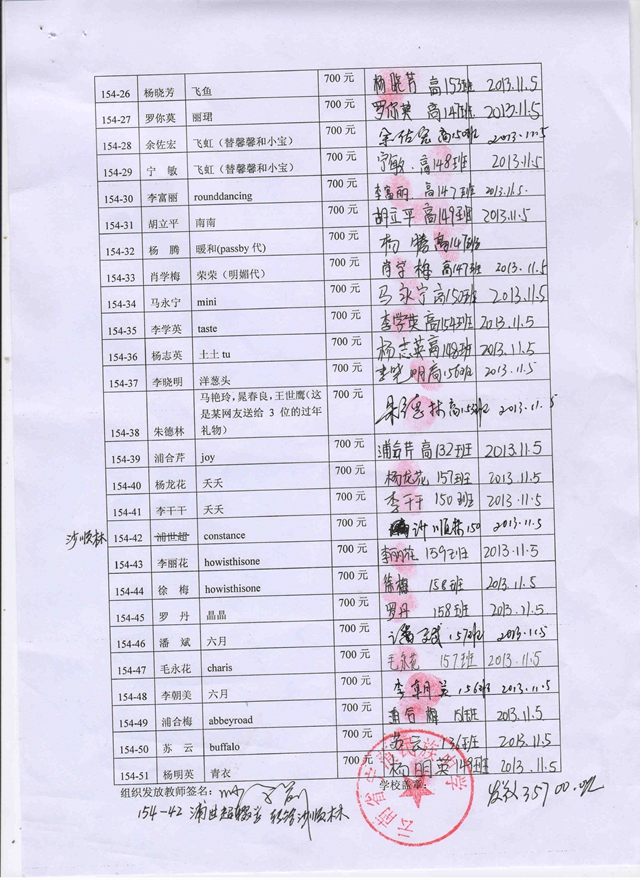 154-26 杨晓芳 飞鱼 700 元 杨晓芳 高153班 2013.11.5
154-27 罗你莫 丽珺 700 元 罗你莫 高147班 2013.11.5
154-28 余佐宏 飞虹（替馨馨和小宝） 700 元 余佐宏 高150班 2013.11.5
154-29 宁 敏 飞虹（替馨馨和小宝） 700 元 宁敏 高148班 2013.11.5
154-30 李富丽 rounddancing 700 元 李富丽 高147班 2013.11.5.
154-31 胡立平 南南 700 元 胡立平 高149班 2013.11.5
154-32 杨 腾 暖和(passby 代) 700 元 杨腾 高147班
154-33 肖学梅 荣荣（明媚代） 700 元 肖学梅 高147班 2013.11.5
154-34 马永宁 mini 700 元 马永宁 高150班 2013.11.5
154-35 李学英 taste 700 元 李学英 高154班 2013.11.5
154-36 杨志英 土土 tu 700 元 杨志英 高148班 2013.11.5
154-37 李晓明 洋葱头 700 元 李晓明 高156班 2013.11.5
马艳玲，晁春良，王世鹰（这
是某网友送给 3 位的过年
154-38 朱德林 礼物） 700 元 朱德林 高153班 2013.11.5
154-39 浦合芹 joy 700 元 浦合芹 高132班 2013.11.5
154-40 杨龙花 天天 700 元 杨龙花 157班 2013.11.5
154-41 李干干 天天 700 元 李干干 150班 2013.11.5
沙顺林 154-42 浦世超 constance 700 元 沙顺林 150 2013.11.5
154-43 李丽花 howisthisone 700 元 李丽花 159班 2013.11.5
154-44 徐 梅 howisthisone 700 元 徐梅 158班 2013.11.5
154-45 罗 丹 晶晶 700 元 罗丹 158班 2013.11.5
154-46 潘 斌 六月 700 元 潘斌 157班 2013.11.5
154-47 毛永花 charis 700 元 毛永花 157班 2013.11.5
154-48 李朝美 六月 700 元 李朝美 156班 2013.11.5
154-49 浦合梅 abbeyroad 700 元 浦合梅 151班 2013.11.5
154-50 苏 云 buffalo 700 元 苏云 131班 2013.11.5
154-51 杨明英 青衣 700 元 杨明英 149班 2013.11.5
组织发放教师签名： 学校盖章： 发放35700.元
154-42 浦世超 转给沙顺林